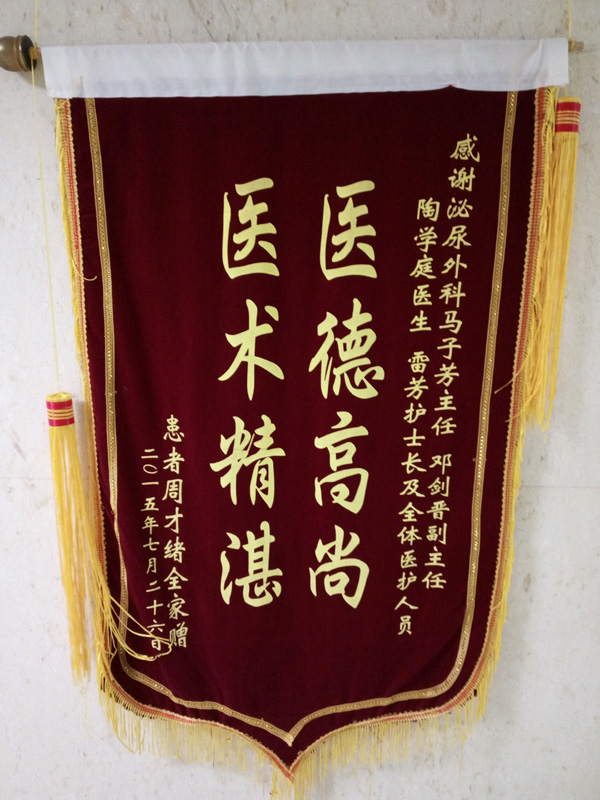 感谢泌尿外科马子芳主任 邓剑晋副主任
陶学庭医生 雷芳护士长及全体医护人员
医德高尚
医术精湛
患者周才绪全家赠
二〇一五年七月二十六日